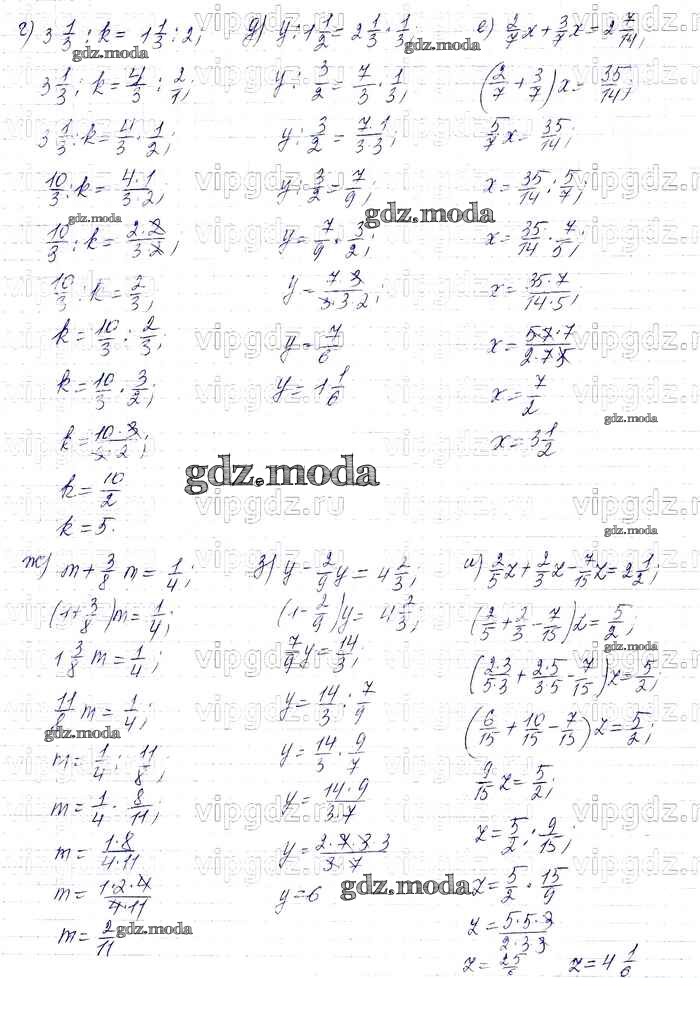 г) 3 1/3 : k = 1 1/3 : 2;
3 1/3 : k = 4/3 : 2/1;
3 1/3 : k = 4/3 · 1/2;
10/3 : k = 4·1/3·2;
10/3 : k = 2·2/3·2;
10/3 : k = 2/3;
k = 10/3 : 2/3;
k = 10/3 · 3/2;
k = 10·3/3·2;
k = 10/2
k = 5.
д) y : 1 1/2 = 2 1/3 · 1/3;
y : 3/2 = 7/3 · 1/3;
y : 3/2 = 7·1/3·3;
y : 3/2 = 7/9;
y = 7/9 · 3/2;
y = 7·3/3·3·2;
y = 7/6
y = 1 1/6
е) 2/7 x + 3/7 x = 2 7/14;
(2/7 + 3/7) x = 35/14;
5/7 x = 35/14;
x = 35/14 : 5/7;
x = 35/14 · 7/5;
x = 35·7/14·5;
x = 5·7·7/2·7·5
x = 7/2
x = 3 1/2
ж) m + 3/8 m = 1/4;
(1 + 3/8) m = 1/4;
1 3/8 m = 1/4;
11/8 m = 1/4;
m = 1/4 : 11/8;
m = 1/4 · 8/11;
m = 1·8/4·11
m = 1·2·4/4·11
m = 2/11
з) y - 2/9 y = 4 2/3;
(1 - 2/9) y = 4 2/3;
7/9 y = 14/3;
y = 14/3 : 7/9
y = 14/3 · 9/7
y = 14·9/3·7
y = 2·7·3·3/3·7
y = 6
и) 2/5 z + 2/3 z - 7/15 z = 2 1/2;
(2/5 + 2/3 - 7/15) z = 5/2;
(2·3/5·3 + 2·5/3·5 - 7/15) z = 5/2;
(6/15 + 10/15 - 7/15) z = 5/2;
9/15 z = 5/2;
z = 5/2 : 9/15;
z = 5/2 · 15/9
z = 5·5·3/2·3·3
z = 25/6 z = 4 1/6
gdz.moda
vipgdz.ru